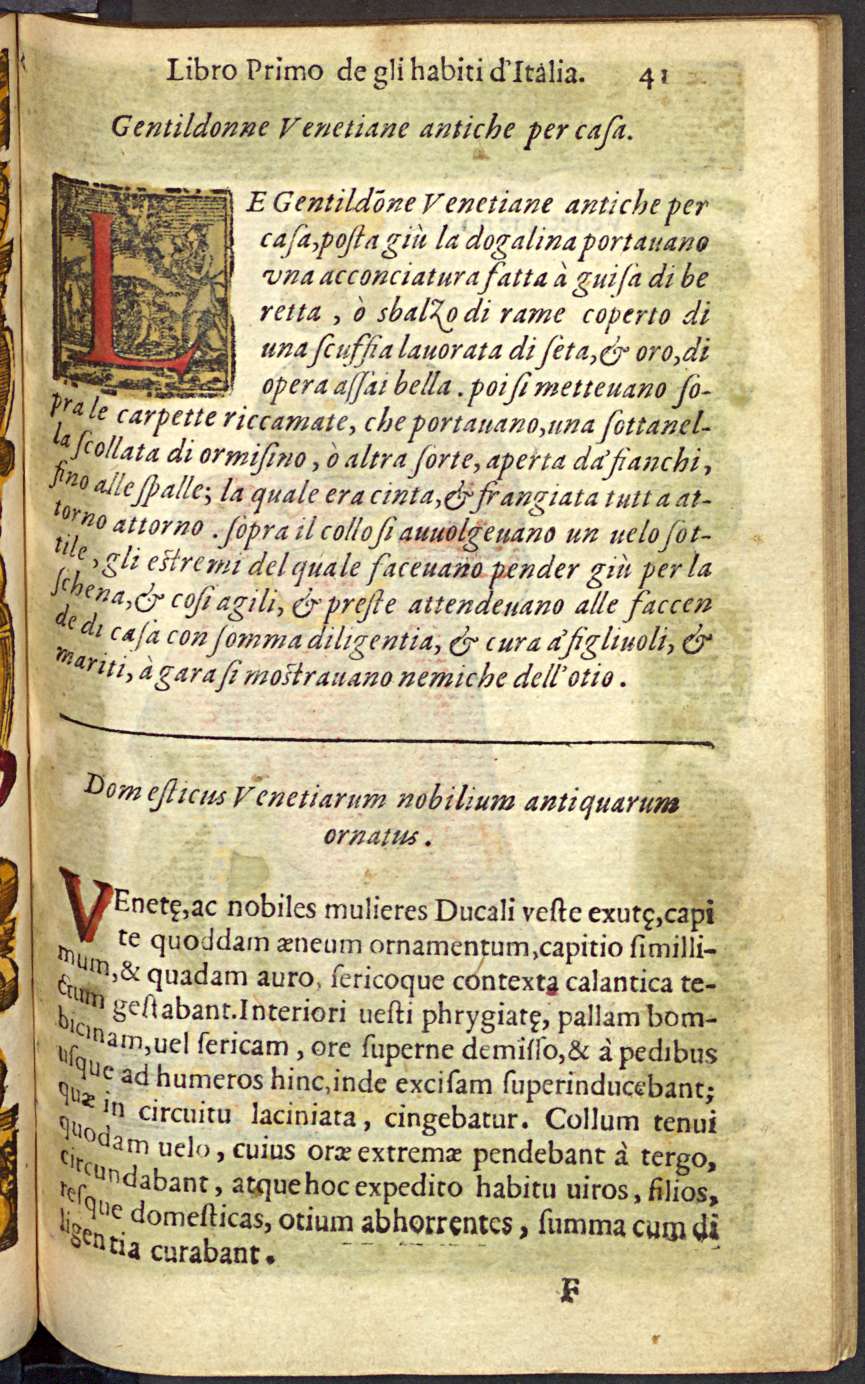 Libro Primo de gli habiti d'Italia. 41
Gentildonne Venetiane antiche per casa.
LE Gentildōne Venetiane antiche per
casa, posta giù la dogalina portauano
vna acconciatura fatta à guisa di be
retta, ò sbalzo di rame coperto di
una scuffia lauorata di seta, & oro, di
opera assai bella. poi si metteuano so-
pra le carpette riccamate, che portauano, una sottanel-
la scollata di ormisino, ò altra sorte, aperta da' fianchi,
fino alle spalle; la quale era cinta, & frangiata tutta at-
torno attorno. sopra il collo si auuolgeuano un uelo sot-
tile, gli estremi del quale faceuano pender giù per la
schena, & cosi agili, & preste attendeuano alle faccen
de di casa con somma diligentia, & cura a' figliuoli, &
mariti, à gara si mostrauano nemiche dell'otio.
Domesticus Venetiarum nobilium antiquarum
ornatus.
VEnetę, ac nobiles mulieres Ducali veste exutę, capi
te quoddam æneum ornamentum, capitio simili-
mum, & quadam auro, sericoque contexta calantica te-
ctum gestabant. Interiori uesti phrygiatę, pallam bom-
bicinam, uel sericam, ore superne demisso, & à pedibus
usque ad humeros hinc, inde excisam superinducebant;
quæ in circuitu laciniata, cingebatur. Collum tenui
quodam uelo, cuius oræ extremæ pendebant à tergo,
circundabant, atque hoc expedito habitu uiros, filios,
resque domesticas, otium abhorrentes, summa cum di
ligentia curabant.
F